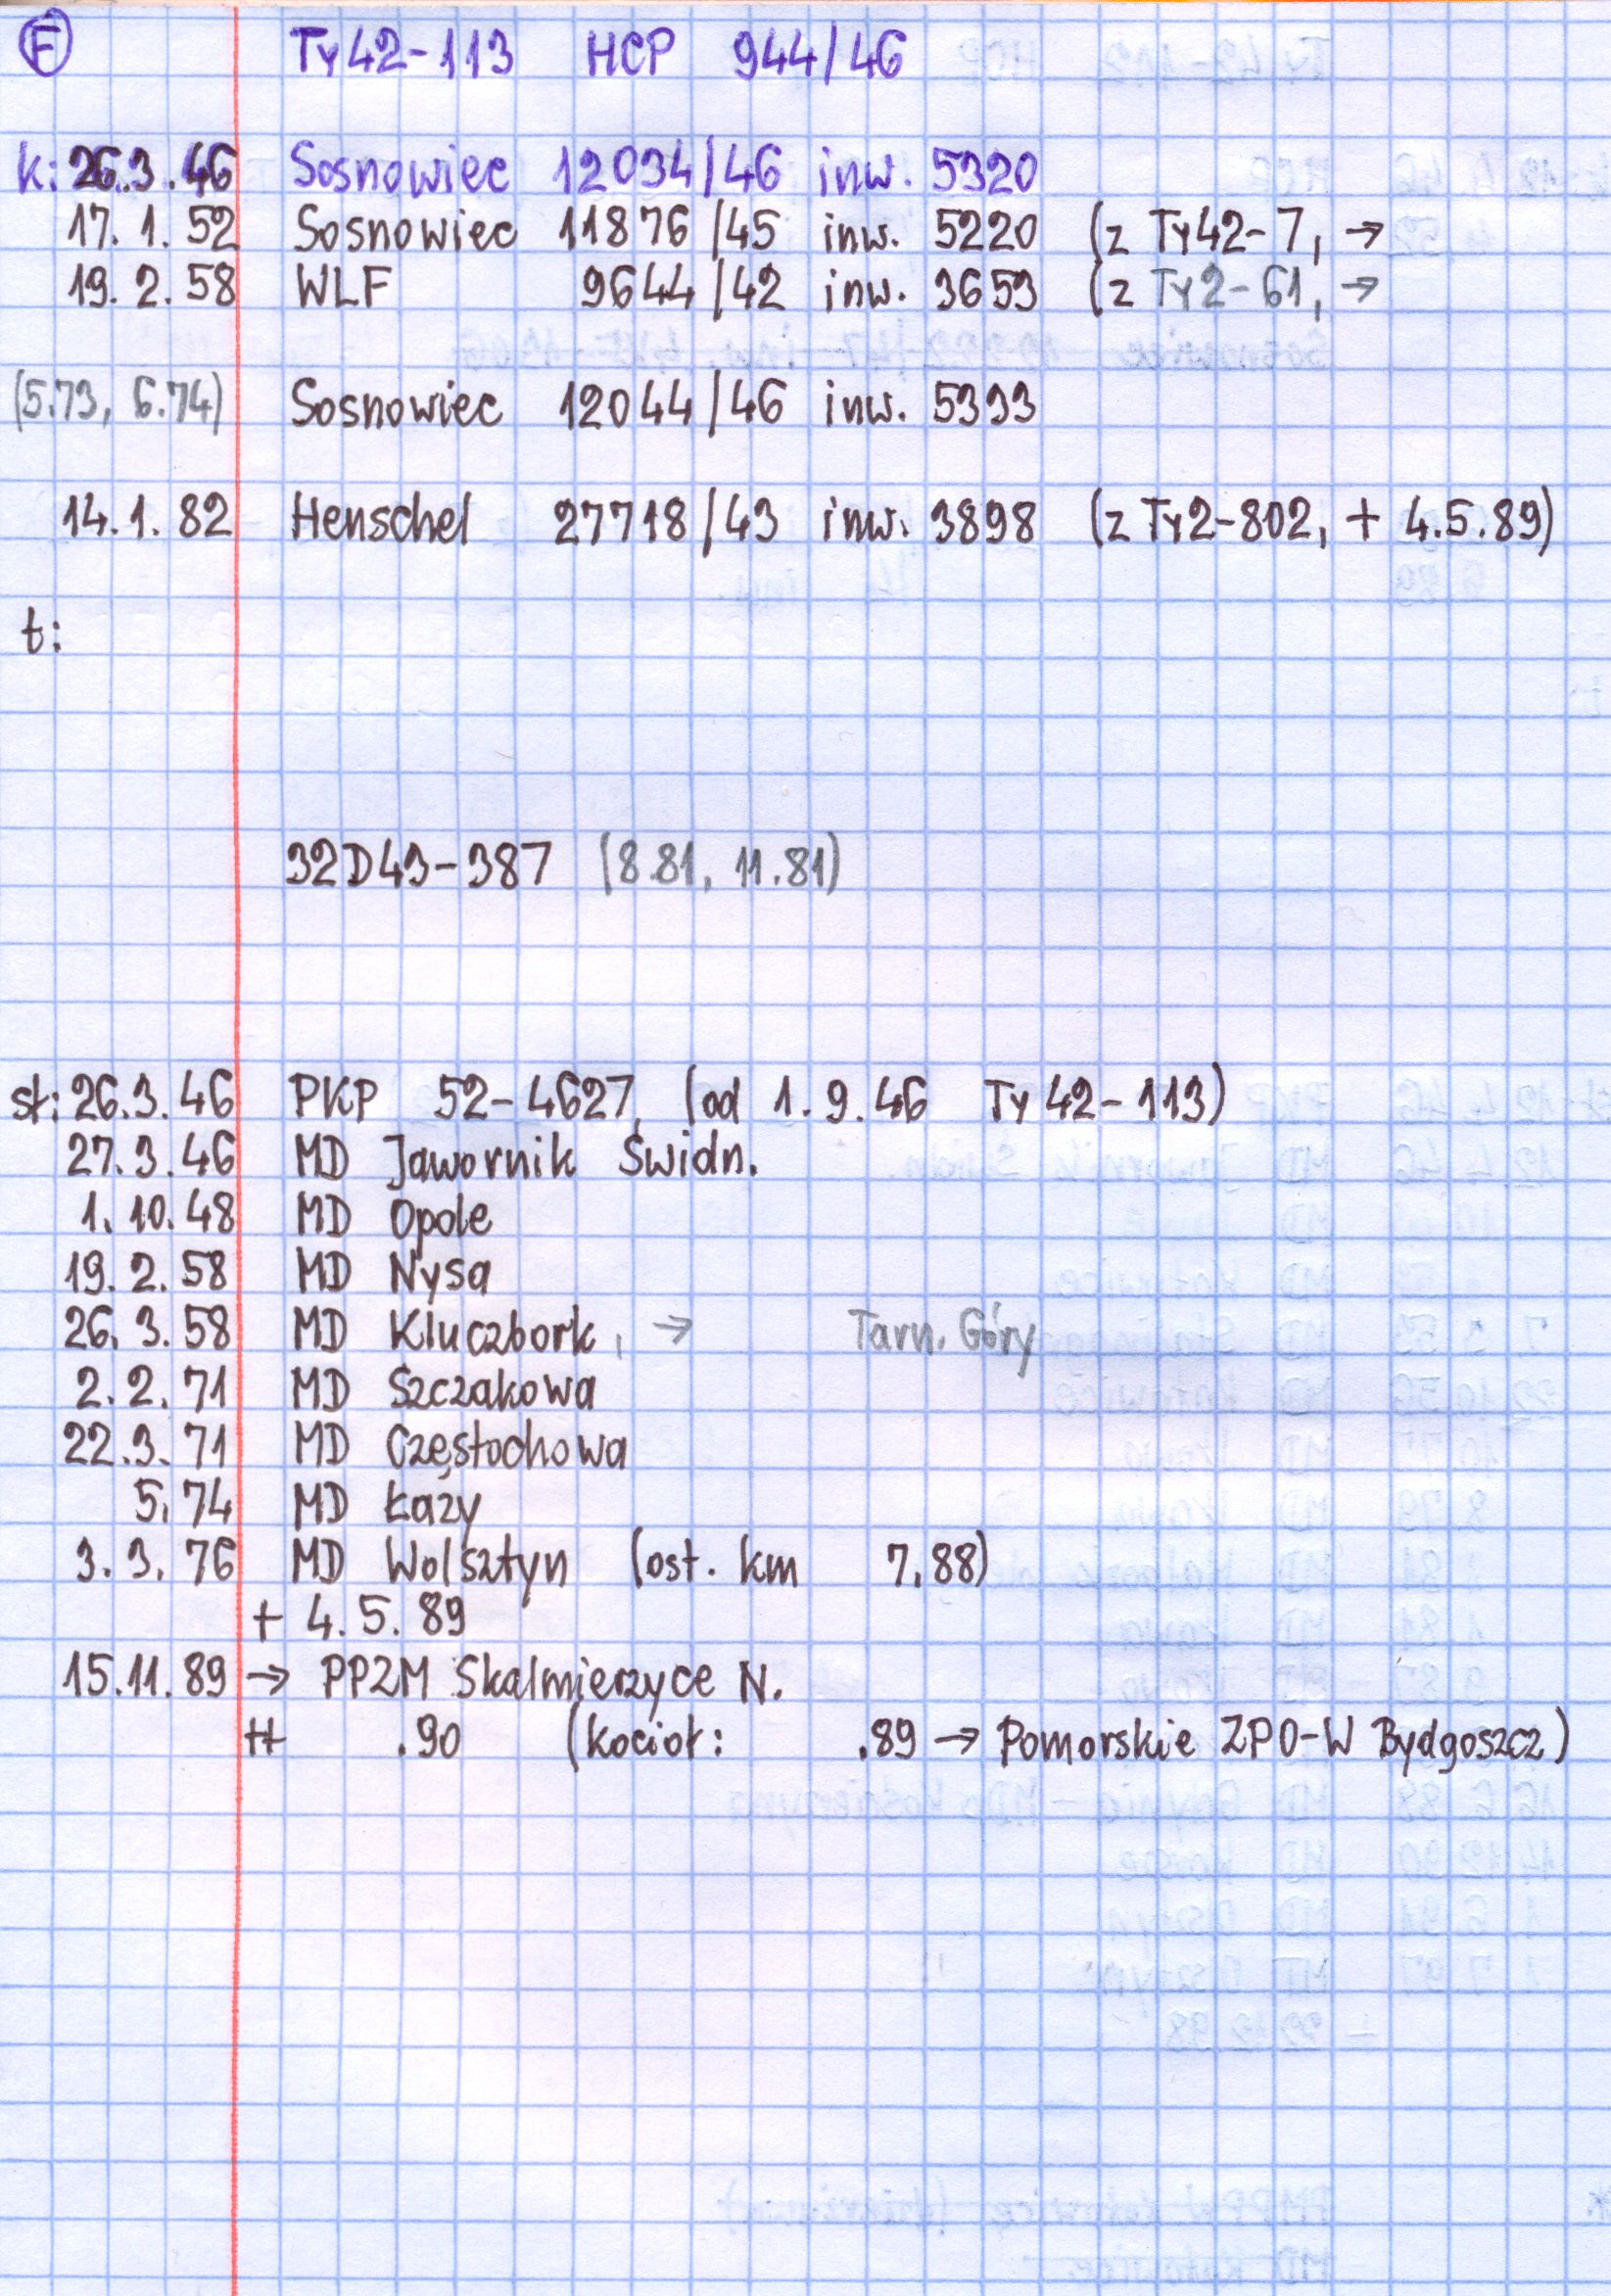 F Ty42-113 HCP 944/46
k: 26.3.46 Sosnowiec 12034/46 inw. 5320
17.1.52 Sosnowiec 11876/45 inw. 5220 (z Ty42-7, →
19.2.58 WLF 9644/42 inw. 3653 (z Ty2-61, →
(5.73, 6.74) Sosnowiec 12044/46 inw. 5333
14.1.82 Henschel 27718/43 inw. 3898 (z Ty2-802, + 4.5.89)
t:
32D43-387 (8.81, 11.81)
st: 26.3.46 PKP 52-4627, (od 1.9.46 Ty42-113)
27.3.46 MD Jawornik Świdn.
1.10.48 MD Opole
19.2.58 MD Nysa
26.3.58 MD Kluczbork, → Tarn. Góry
2.2.71 MD Szczakowa
22.3.71 MD Częstochowa
5.74 MD Łazy
3.3.76 MD Wolsztyn (ost. km 7.88)
+ 4.5.89
15.11.89 → PPZM Skalmierzyce N.
++ .90 (kocioł: .89 → Pomorskie ZPO-W Bydgoszcz)